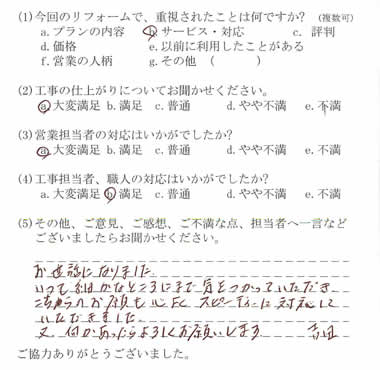 (1) 今回のリフォームで、重視されたことは何ですか? (複数可)
a. プランの内容 b. サービス・対応 c. 評判
d. 価格 e. 以前に利用したことがある
f. 営業の人柄 g. その他 ( )
(2) 工事の仕上がりについてお聞かせください。
a. 大変満足 b. 満足 c. 普通 d. やや不満 e. 不満
(3) 営業担当者の対応はいかがでしたか?
a. 大変満足 b. 満足 c. 普通 d. やや不満 e. 不満
(4) 工事担当者、職人の対応はいかがでしたか?
a. 大変満足 b. 満足 c. 普通 d. やや不満 e. 不満
(5) その他、ご意見、ご感想、ご不満な点、担当者へ一言など
ございましたらお聞かせください。
お世話になりました。
いつも細かなところにまで気をつかっていただき
こちらのお願いにも スピーディーに対応して
いただきました。
又、何かあったらよろしくお願いします 吉田
ご協力ありがとうございました。